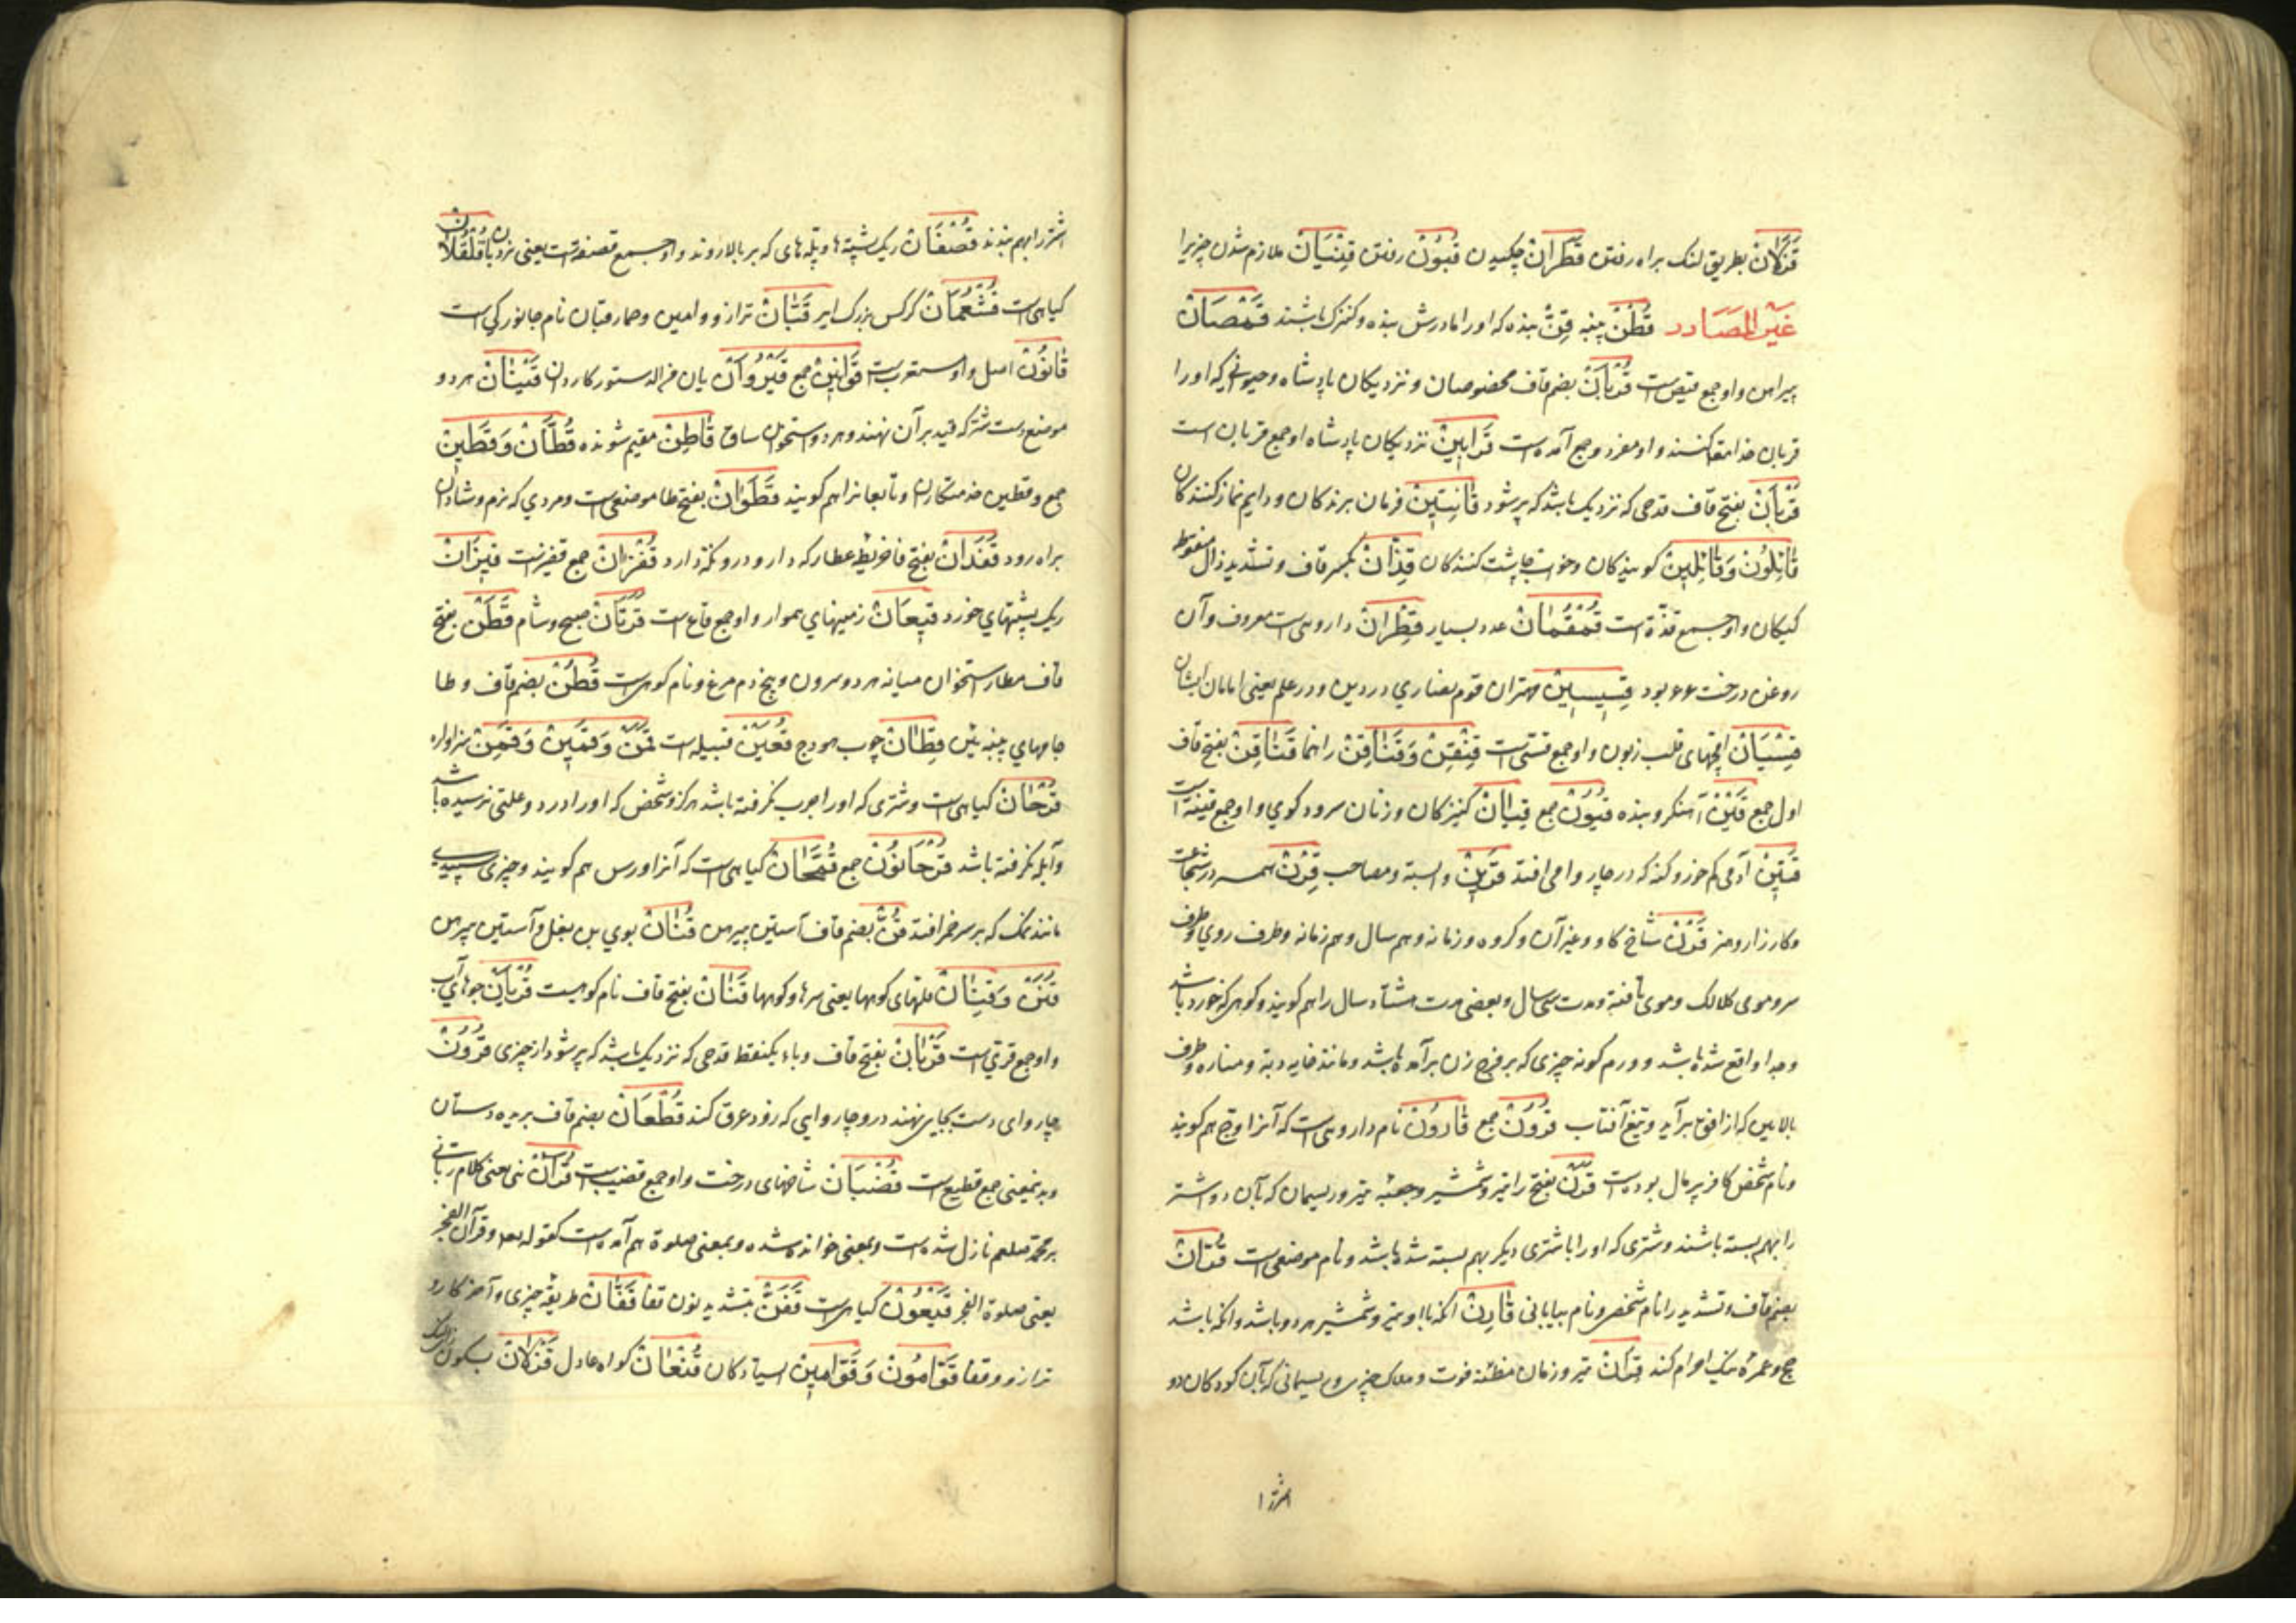 قَنَكَانْ بطریق لنک براه رفتن قَطَرانْ چکیدن قُبُونْ رفتن قِنْیَانْ ملازم شدن چیزیرا
غَیرالمَصَادر قُطُنْ پنبه قِنّْ بنده که اورا مادرش بنده و کنیزک باشند قُمْصَانْ
پیراهن واو جمع قمیص است قُرْبَانْ بضم قاف مخصوصان و نزدیکان پادشاه و حیوانی که اورا
قربان خدا کنند واو مفرد و جمع آمده است قَرَابینْ نزدیکان پادشاه او جمع قربان است
قَرْبَانْ بفتح قاف قدحی که نزدیک باشد که پر شود قَانِتِینْ فرمان برندکان و دایم نماز کنندکان
قَائِلُونْ وَقَائِلِینْ کویندکان و خواب چاشت کنندکان قِذَّانْ بکسر قاف و تشدید ذال منقوطه
کیکان واو جمع قذّة است قُمْقُمَانْ عدد بسیار قِطْرَانْ داروی است معروف وآن
روغن درخت عرعر بود قِسِّیسِینْ مهتران قوم نصاری در دین و در علم یعنی امامان ایشان
قِسْیَانْ اقچهای قلب زبون واو جمع قسّی است قِنْقِنْ وَقُنَاقِنْ راهنما قَنَاقِنْ بفتح قاف
اول جمع قَیْنْ آهنکر و بنده قُیُونْ جمع قِیَانْ کنیزکان و زنان سرود کوی واو جمع قینة است
قَتِینْ آدمی کم خور و کنه که در چاروا می افتد قَرِینْ وابسته و مصاحب قِرْنْ همسر در شجاعت
وکارزار و هنر قَرْنْ شاخ کاو و غیر آن و کروه و زمانه و هم سال و هم زمانه و طرف روی و طرف
سر و موی کلالک و موی بافته و مدت سی سال و بعضی مدت هشتاد سال را هم کویند و کوهی که خورد باشد
وجدا واقع شده باشد و ورم کونه چیزی که بر فرج زن برآمده باشد و مانند خایه دبه و مناره و طرف
بالایین که از افق برآید و تیغ آفتاب قُرُونْ جمع قَارُونْ نام داروی است که آنرا وج هم کویند
ونام شخص کافر پر مال بوده است قَرَنْ بفتح را تیر و شمشیر و جعبه تیر و ریسمان که بآن دو اشتر
را بهم بسته باشند و شتری که اورا باشتری دیکر بهم بسته شده باشد و نام موضعی است قُرَّانْ
بضم قاف و تشدید را نام شخص و نام بیابانی قَارِنْ آنکه با او تیر و شمشیر هر دو باشد و آنکه باشد
حج و عمره بیک احرام کند قِرَانْ تیر و زمان مظنّه فوت و هلاک چیزی و ریسمانی که بآن کودکان دو
اشتر را
اشتر را بهم بندند قُصْفَانْ ریک پشته ها و پله های که بر بالا روند واو جمع قصفة است یعنی نردبان قُلْقُلَانْ
کیاهی است قُشْعُمَانْ کرکس بزرک ایر قَبَّانْ ترازو و امین و حمار قبان نام جانورکی است
قَانُونْ اصل واو معرب است قَوَانِینْ جمع قَیْرَوَانْ دستور کاردان قَیْنَانْ هردو
موضع دست شتر که قید بر آن نهند و هردو استخوان ساق قَاطِنْ مقیم شونده قُطَّانْ وَقَطِینْ
جمع و قطین خدمتکاران و تابعانرا هم کویند قَطَوَانْ بفتح طا موضعی است و مردی که نرم و شادان
براه رود قَفَدَانْ بفتح فا خریطه عطار که دارو درو نکه دارد قُفْزَانْ جمع قفیزست قِیزَانْ
ریک پشتهای خورد قِیعَانْ زمینهای هموار واو جمع قاع است قَرَّتَانْ صبح و شام قَطَنْ بفتح
قاف و طا استخوان میانه هردو سرون و بیخ دم مرغ و نام کوهی است قُطُنْ بضم قاف و طا
جامهای پنبه یین قِطَانْ چوب هودج قُعَیْنْ قبیله است قَمَنْ وَقَمِینْ وَقَمِنْ سزاوار
قُرْحَانْ کیاهی است و شتری که اورا جرب نکرفته باشد هرکز و شخص که اورا درد و علتی نرسیده باشد
وآبله نکرفته باشد قُرْحَانُونْ جمع قُمَّحَانْ کیاهی است که آنرا ورس هم کویند و چیزی سپیدیی
مانند نمک که بر سر خمر افتد قُنّْ بضم قاف آستین پیرهن قُنَانْ بوی بن بغل و آستین پیرهن
قُنَنْ وَقِنَانْ قلتهای کوهها یعنی سرها و کوهها قَنَانْ بفتح قاف نام کوهیست قُرْیَانْ جوهای آب
واو جمع قری است قَرْبَانْ بفتح قاف و باء یکنقطه قدحی که نزدیک باشد که پر شود از چیزی قَرُونْ
چاروای دست بجای نهند درو و چاروایی که زود عرق کند قُطْعَانْ بضم قاف بریده دستان
وبدین معنی جمع قطیع است قُضْبَانْ شاخهای درخت واو جمع قضیب است قُرْآنْ نبی یعنی کلام ربانی
بر محمد صلعم نازل شده است و بمعنی خوانده شده و بمعنی صلوة هم آمده است کقوله تعه وقرآن الفجر
یعنی صلوة الفجر قَیْعُونْ کیاهی است قَفَنّْ بتشدید نون قفا قَفَّانْ طریقه چیزی و آخر کار و
ترازو و قفا قَوَّامُونْ وَقَوَّامِینْ ایستادکان قُنْعَانْ کواه عادل قَنَكَانْ بسکون